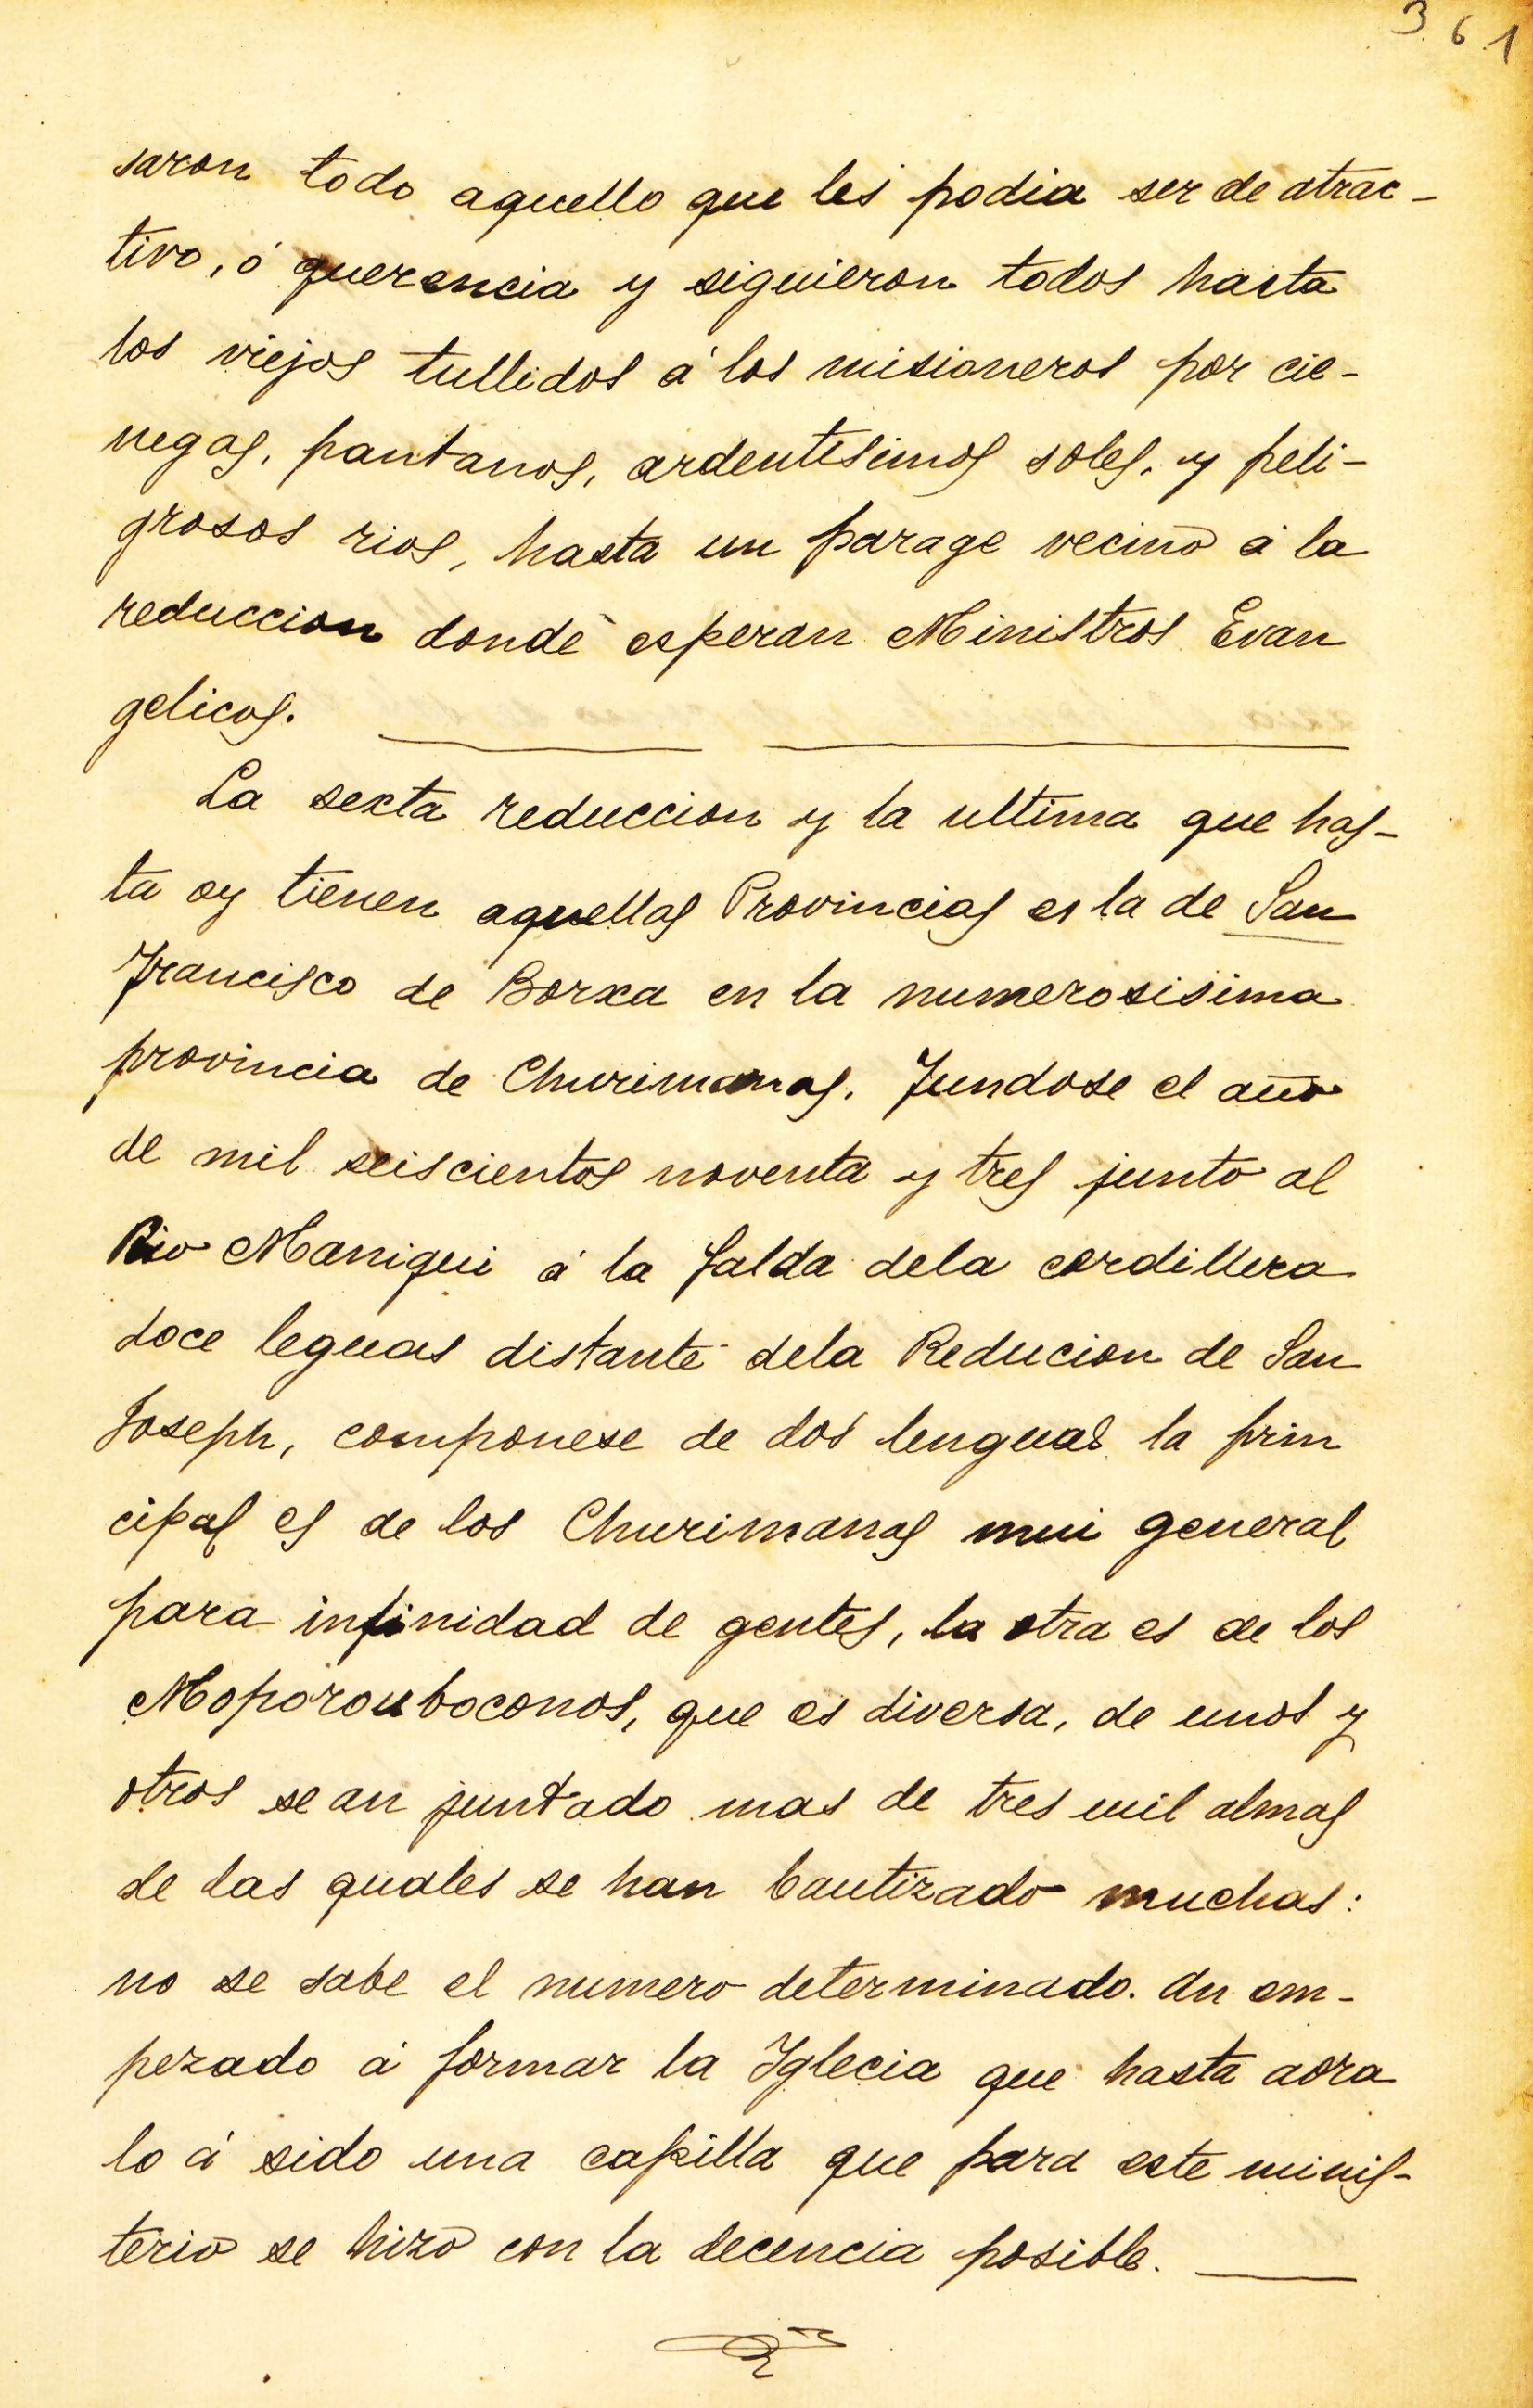 361
saron todo aquello que les podia ser de atrac-
tivo, ó querencia y siguieron todos hasta
los viejos tullidos á los misioneros por cie-
negas, pantanos, ardentisimos soles, y peli-
grosos rios, hasta un parage vecino á la
reduccion donde esperan Ministros Evan
gelicos.
La sexta reduccion y la ultima que has-
ta oy tienen aquellas Provincias es la de San
Francisco de Borxa en la numerosisima
provincia de Churimanas. Fundose el año
de mil seiscientos noventa y tres junto al
Rio Maniqui á la falda dela cordillera
doce leguas distante dela Reducion de San
Joseph, componese de dos lenguas la prin
cipal es de los Churimanas mui general
para infinidad de gentes, la otra es de los
Moporouboconos, que es diversa, de unos y
otros se an juntado mas de tres mil almas
de las quales se han bautizado muchas:
no se sabe el numero determinado. An em-
pezado á formar la Iglecia que hasta aora
lo á sido una capilla que para este minis-
terio se hizo con la decencia posible.